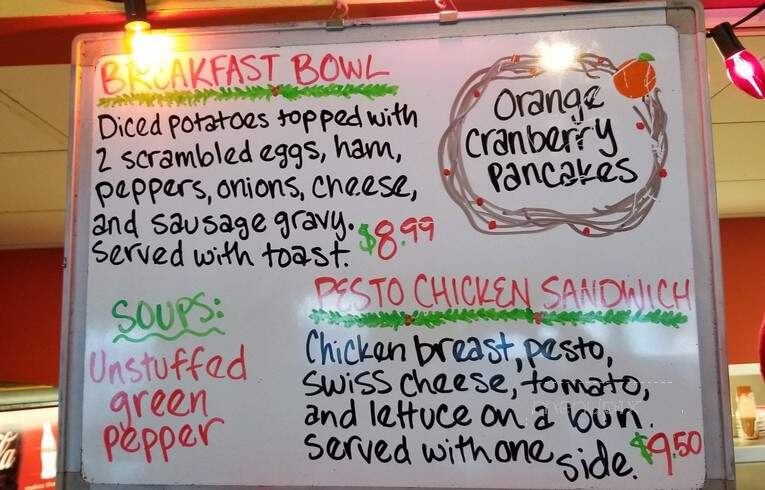 BREAKFAST BOWL
Diced potatoes topped with
2 scrambled eggs, ham,
peppers, onions, cheese,
and sausage gravy.
Served with toast. $8.99
Orange
Cranberry
Pancakes
SOUPS:
Unstuffed
green
pepper
PESTO CHICKEN SANDWICH
Chicken breast, pesto,
swiss cheese, tomato,
and lettuce on a bun.
Served with one side. $9.50